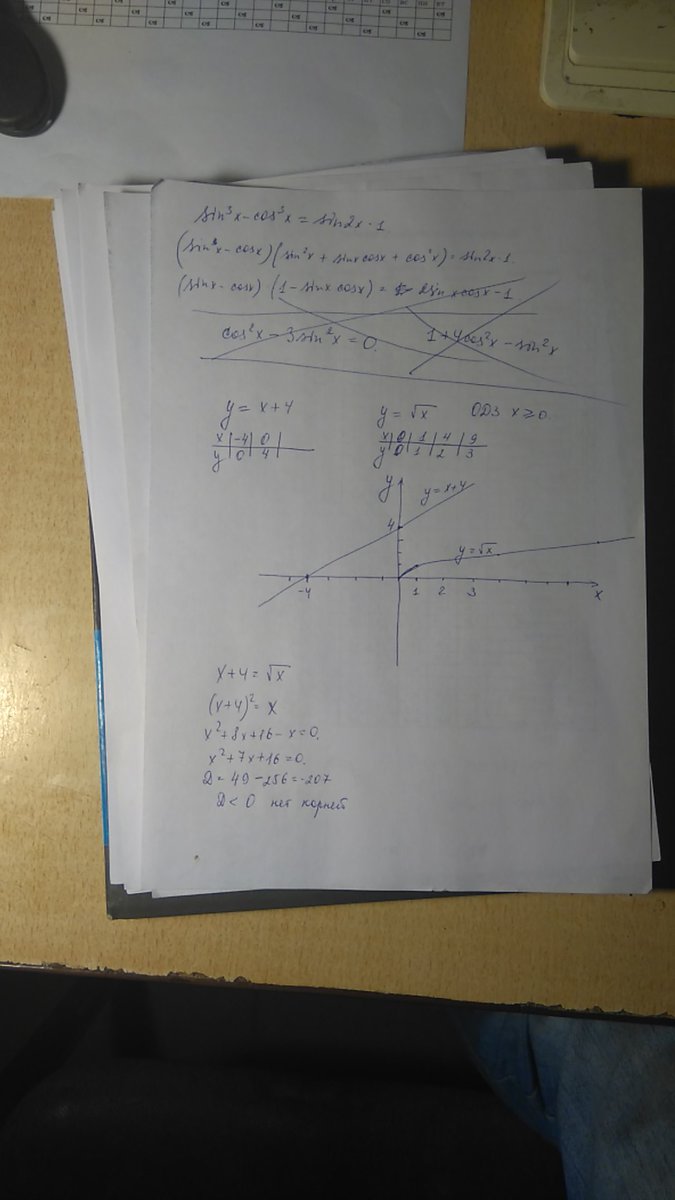 sin³x - cos³x = sin2x · 1
(sin x - cosx)(sin²x + sinx cosx + cos²x) = sin2x · 1.
(sinx - cosx) (1 - sinx cosx) = 2sin x cosx - 1
cos²x - 3sin²x = 0. 1 + 4cos²x - sin²x
y = x + 4 y = √x ОДЗ x ≥ 0.
x | -4 | 0 | x | 0 | 1 | 4 | 9
y | 0 | 4 | y | 0 | 1 | 2 | 3
y
y = x+4
4
y = √x
-4 1 2 3 x
x + 4 = √x
(x+4)² = x
x² + 8x + 16 - x = 0.
x² + 7x + 16 = 0.
D = 49 - 256 = -207
D < 0 нет корней